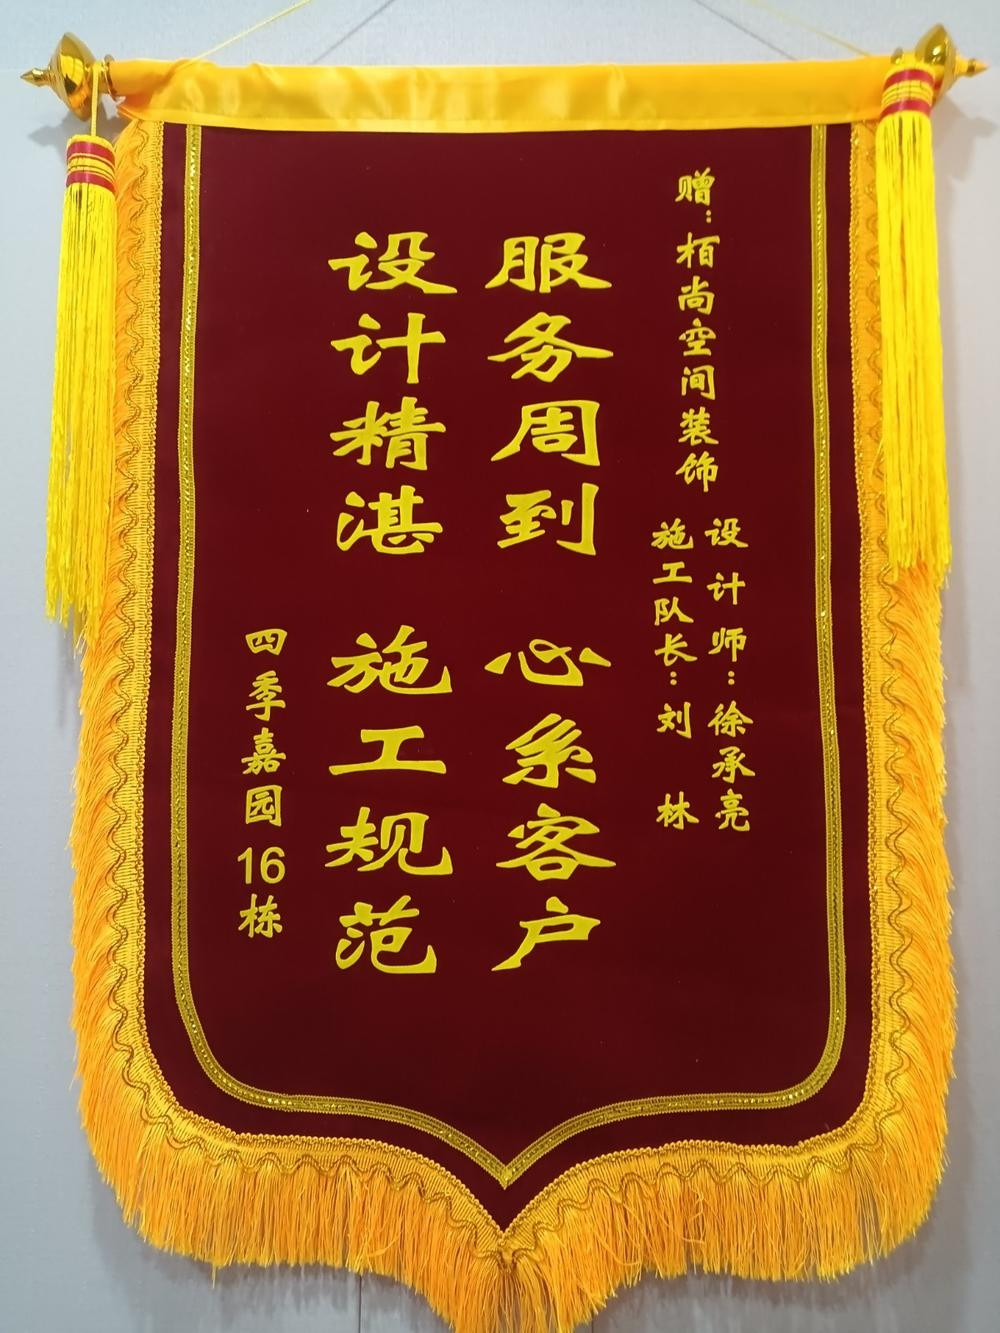 赠：栢尚空间装饰
设计师：徐承亮
施工队长：刘 林
服务周到 心系客户
设计精湛 施工规范
四季嘉园16栋